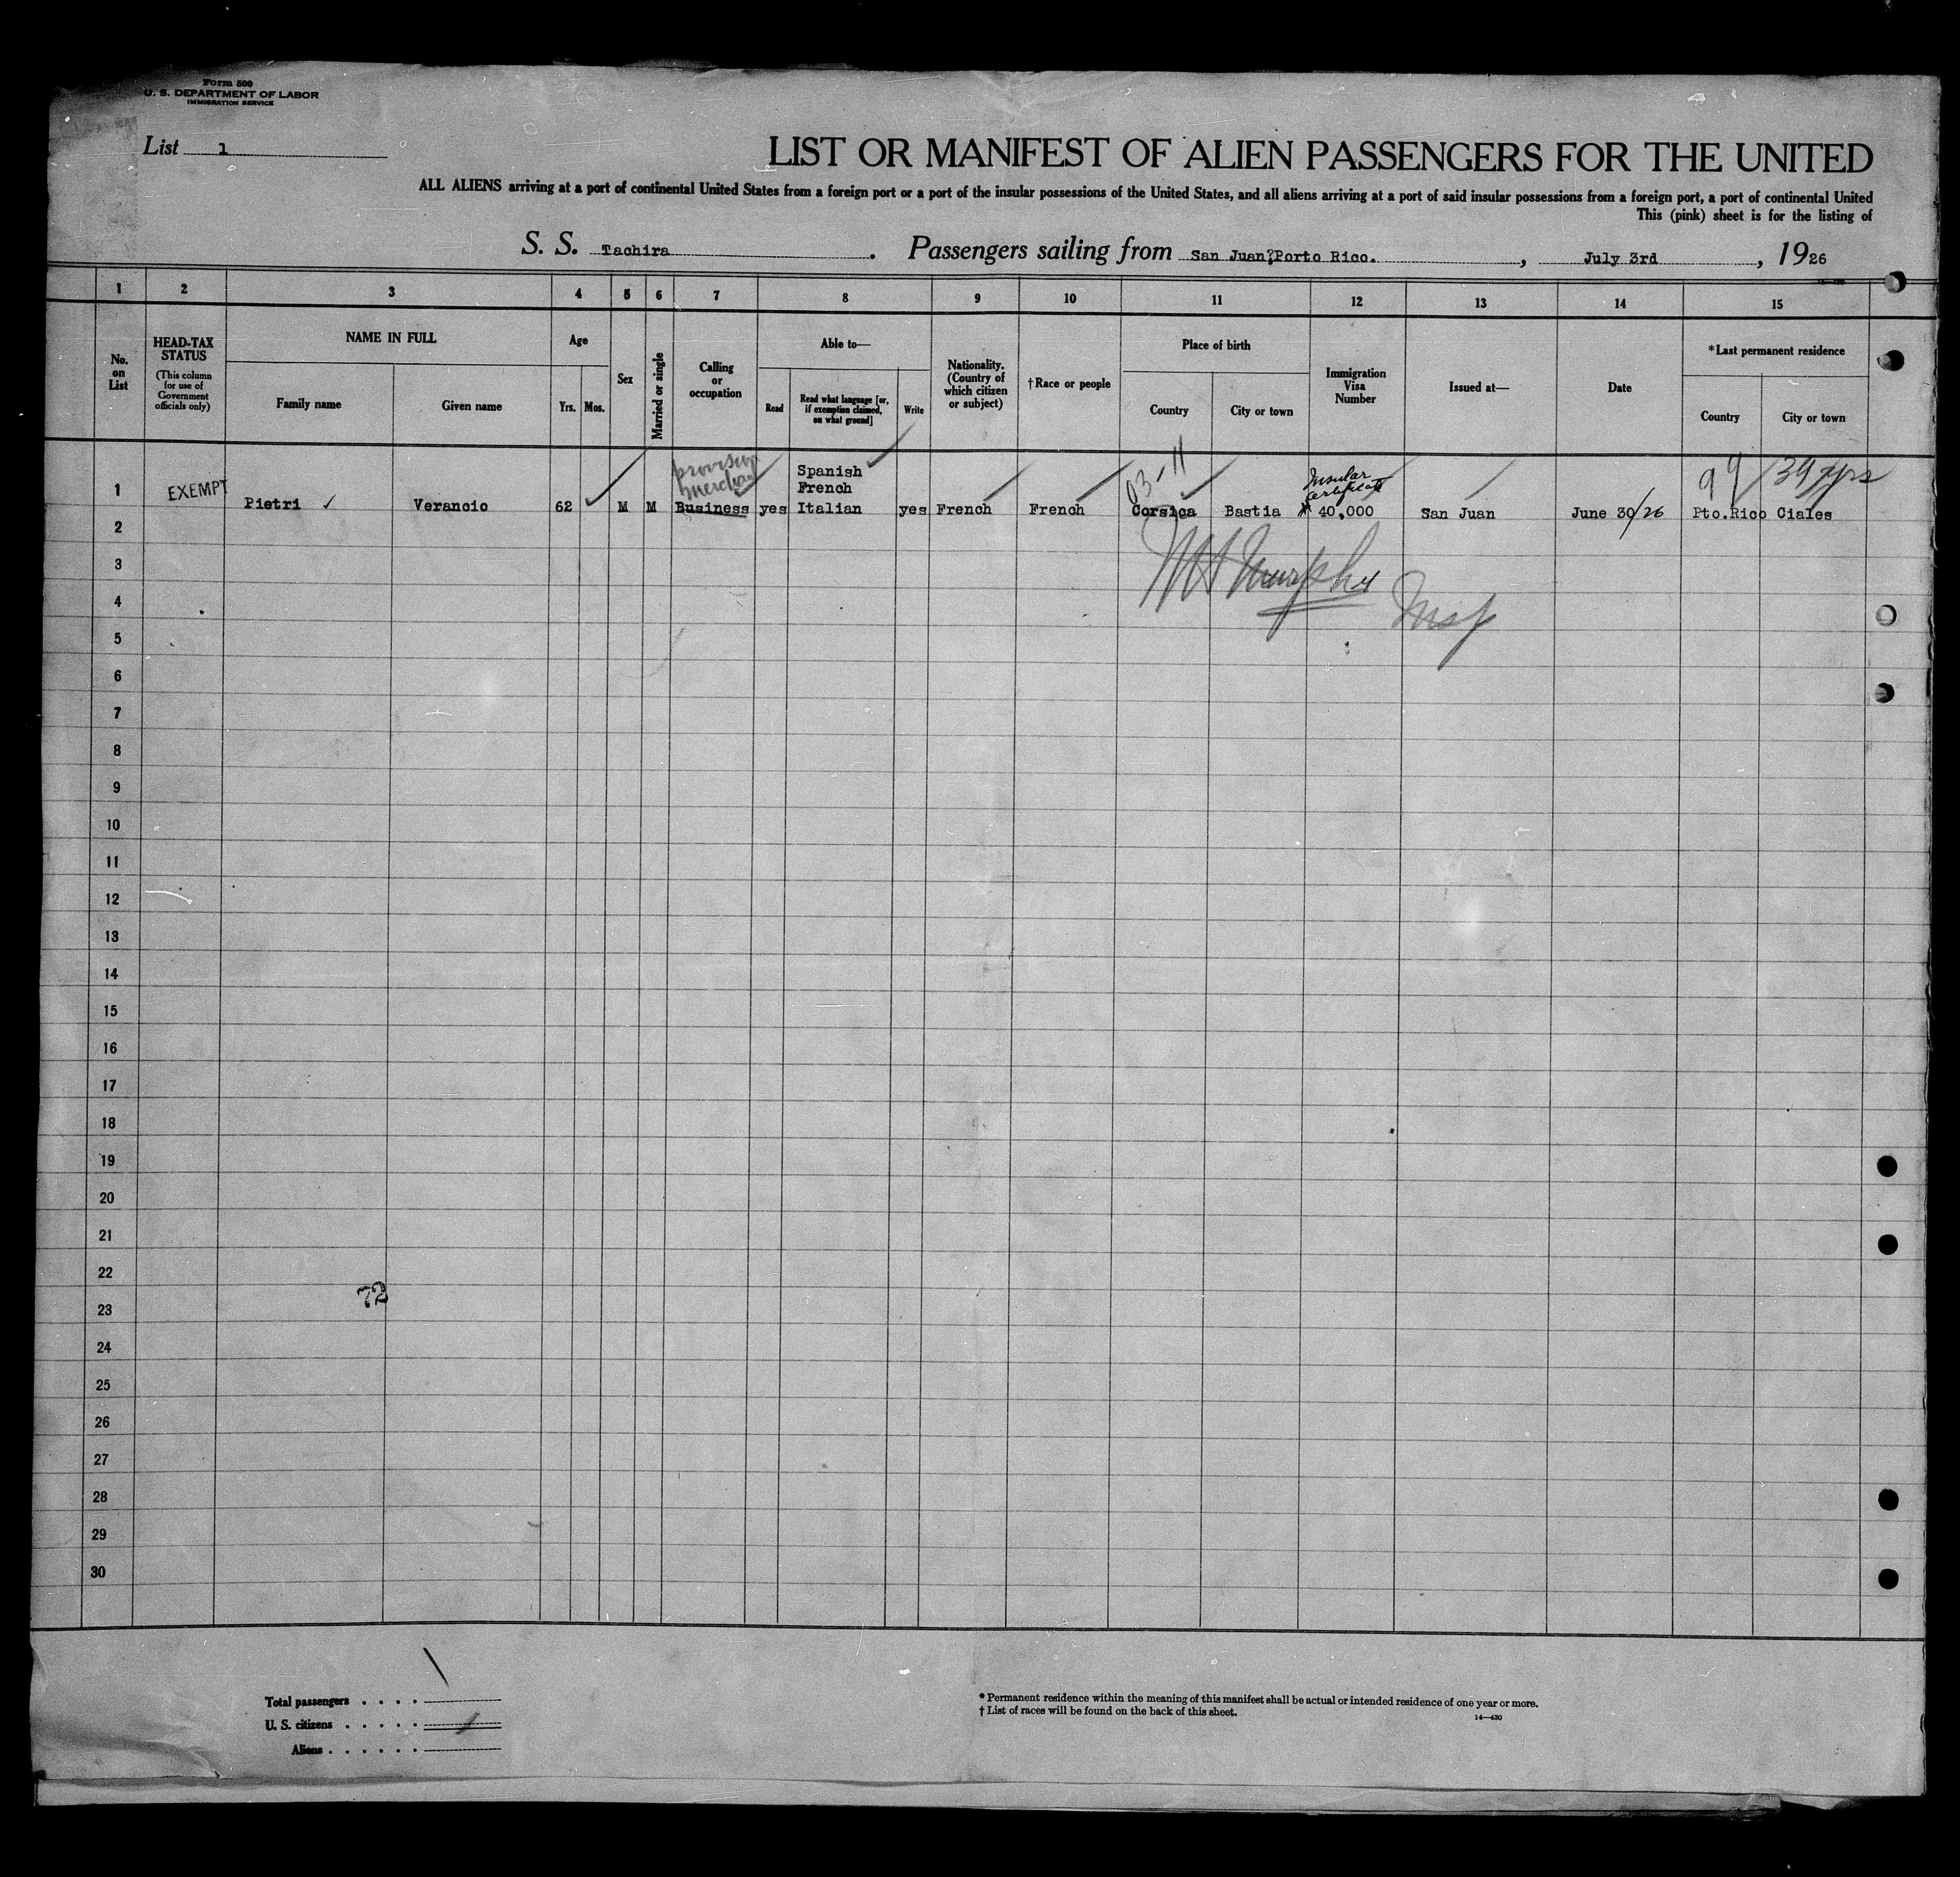 Form 500
U. S. DEPARTMENT OF LABOR
IMMIGRATION SERVICE
List 1
LIST OR MANIFEST OF ALIEN PASSENGERS FOR THE UNITED
ALL ALIENS arriving at a port of continental United States from a foreign port or a port of the insular possessions of the United States, and all aliens arriving at a port of said insular possessions from a foreign port, a port of continental United
This (pink) sheet is for the listing of
S. S. Tachira . Passengers sailing from San Juan?Porto Rico. , July 3rd , 1926
1 2 3 4 5 6 7 8 9 10 11 12 13 14 15
No. on List
HEAD-TAX STATUS
(This column for use of Government officials only)
NAME IN FULL
Family name
Given name
Age
Yrs. Mos.
Sex
Married or single
Calling or occupation
Able to—
Read
Read what language [or, if exemption claimed, on what ground]
Write
Nationality. (Country of which citizen or subject)
†Race or people
Place of birth
Country
City or town
Immigration Visa Number
Issued at—
Date
*Last permanent residence
Country
City or town
03-11
Insular certificate
99 39 yrs
Spanish
French
1 EXEMPT Pietri Verancio 62 M M Business yes Italian yes French French Corsica Bastia 40,000 San Juan June 30/26 Pto.Rico Ciales
2
W H Murphy
3
4
Insp
5
6
7
8
9
10
11
12
13
14
15
16
17
18
19
20
21
22
72
23
24
25
26
27
28
29
30
Total passengers . . . .
U. S. citizens . . . . .
Aliens . . . . . .
* Permanent residence within the meaning of this manifest shall be actual or intended residence of one year or more.
† List of races will be found on the back of this sheet.
14—430